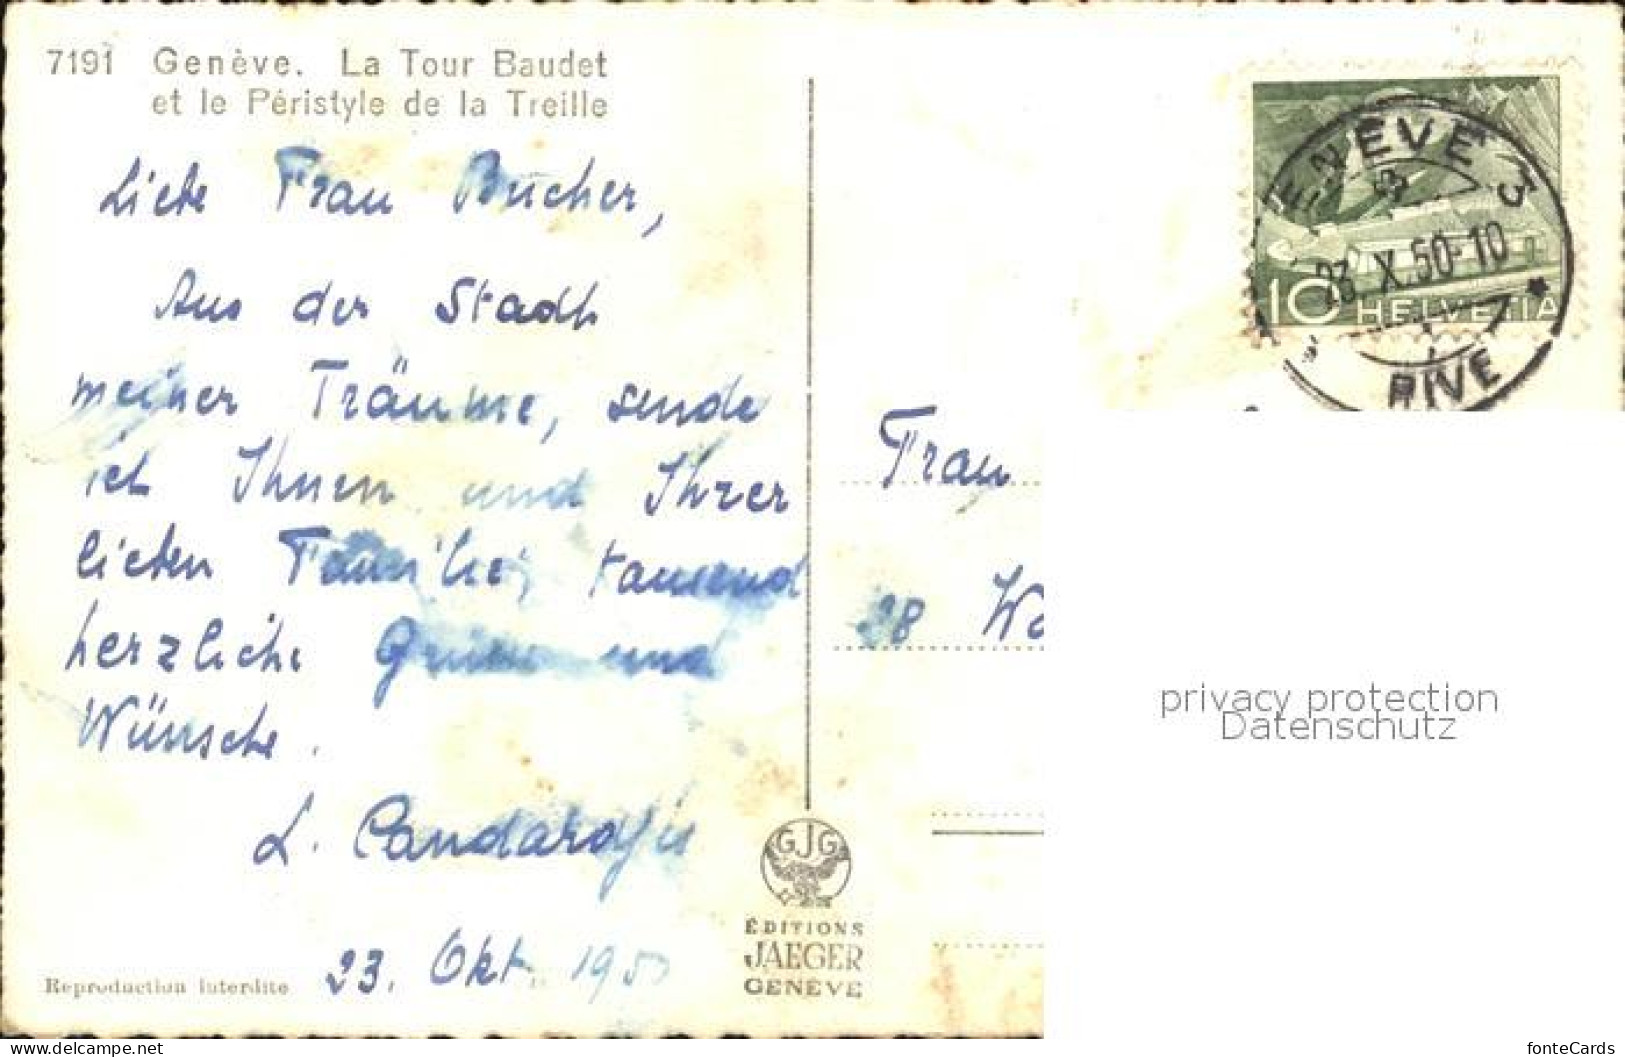 7191 Genève. La Tour Baudet
et le Péristyle de la Treille
Liebe Frau Bucher,
Aus der Stadt
meiner Träume, sende
ich Ihnen und Ihrer
lieben Familie, tausend
herzliche Grüsse und
Wünsche.
L.
23. Okt. 1950
Reproduction interdite
GJG
ÉDITIONS
JAEGER
GENÈVE
GENÈVE 3
23.X.50-10
RIVE
10 HELVETIA
Frau
28 Wo
privacy protection
Datenschutz
delcampe.net
fonteCards